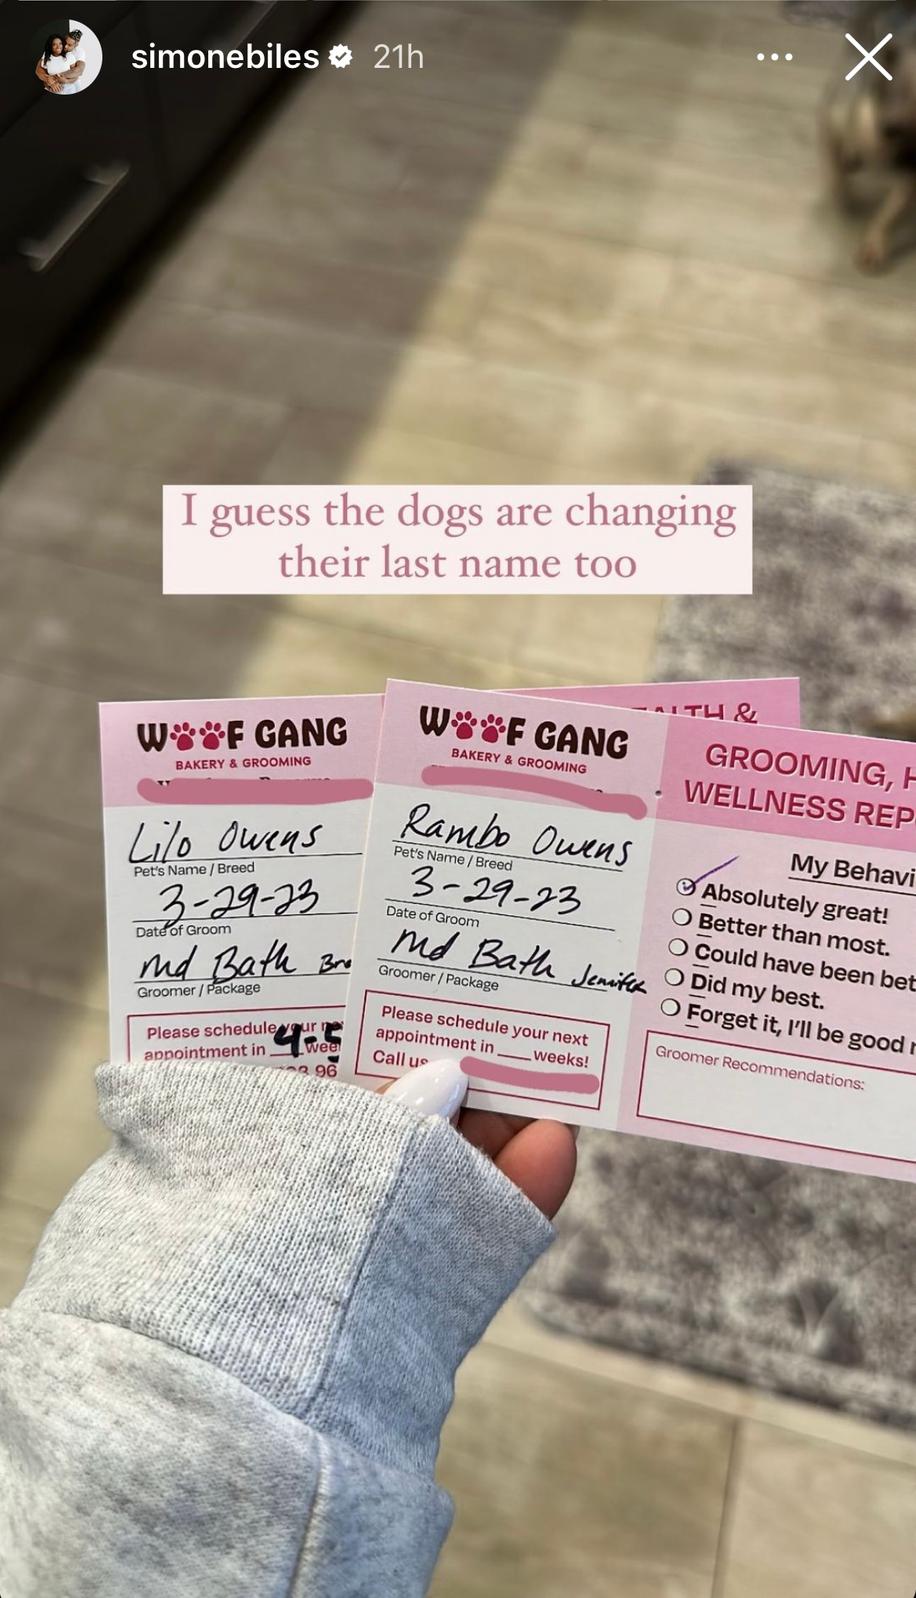 simonebiles 21h
I guess the dogs are changing
their last name too
WOOF GANG
BAKERY & GROOMING
Lilo Owens
Pet's Name / Breed
3-29-23
Date of Groom
md Bath
Groomer / Package
Please schedule your
appointment in 4-5
96
WOOF GANG
BAKERY & GROOMING
Rambo Owens
Pet's Name / Breed
3-29-23
Date of Groom
md Bath Jennifer
Groomer / Package
Please schedule your next
appointment in ___ weeks!
Call us
&
GROOMING,
WELLNESS
My
Absolutely great!
Better than most.
Could have been
Did my best.
Forget it, I'll be good
Groomer Recommendations: